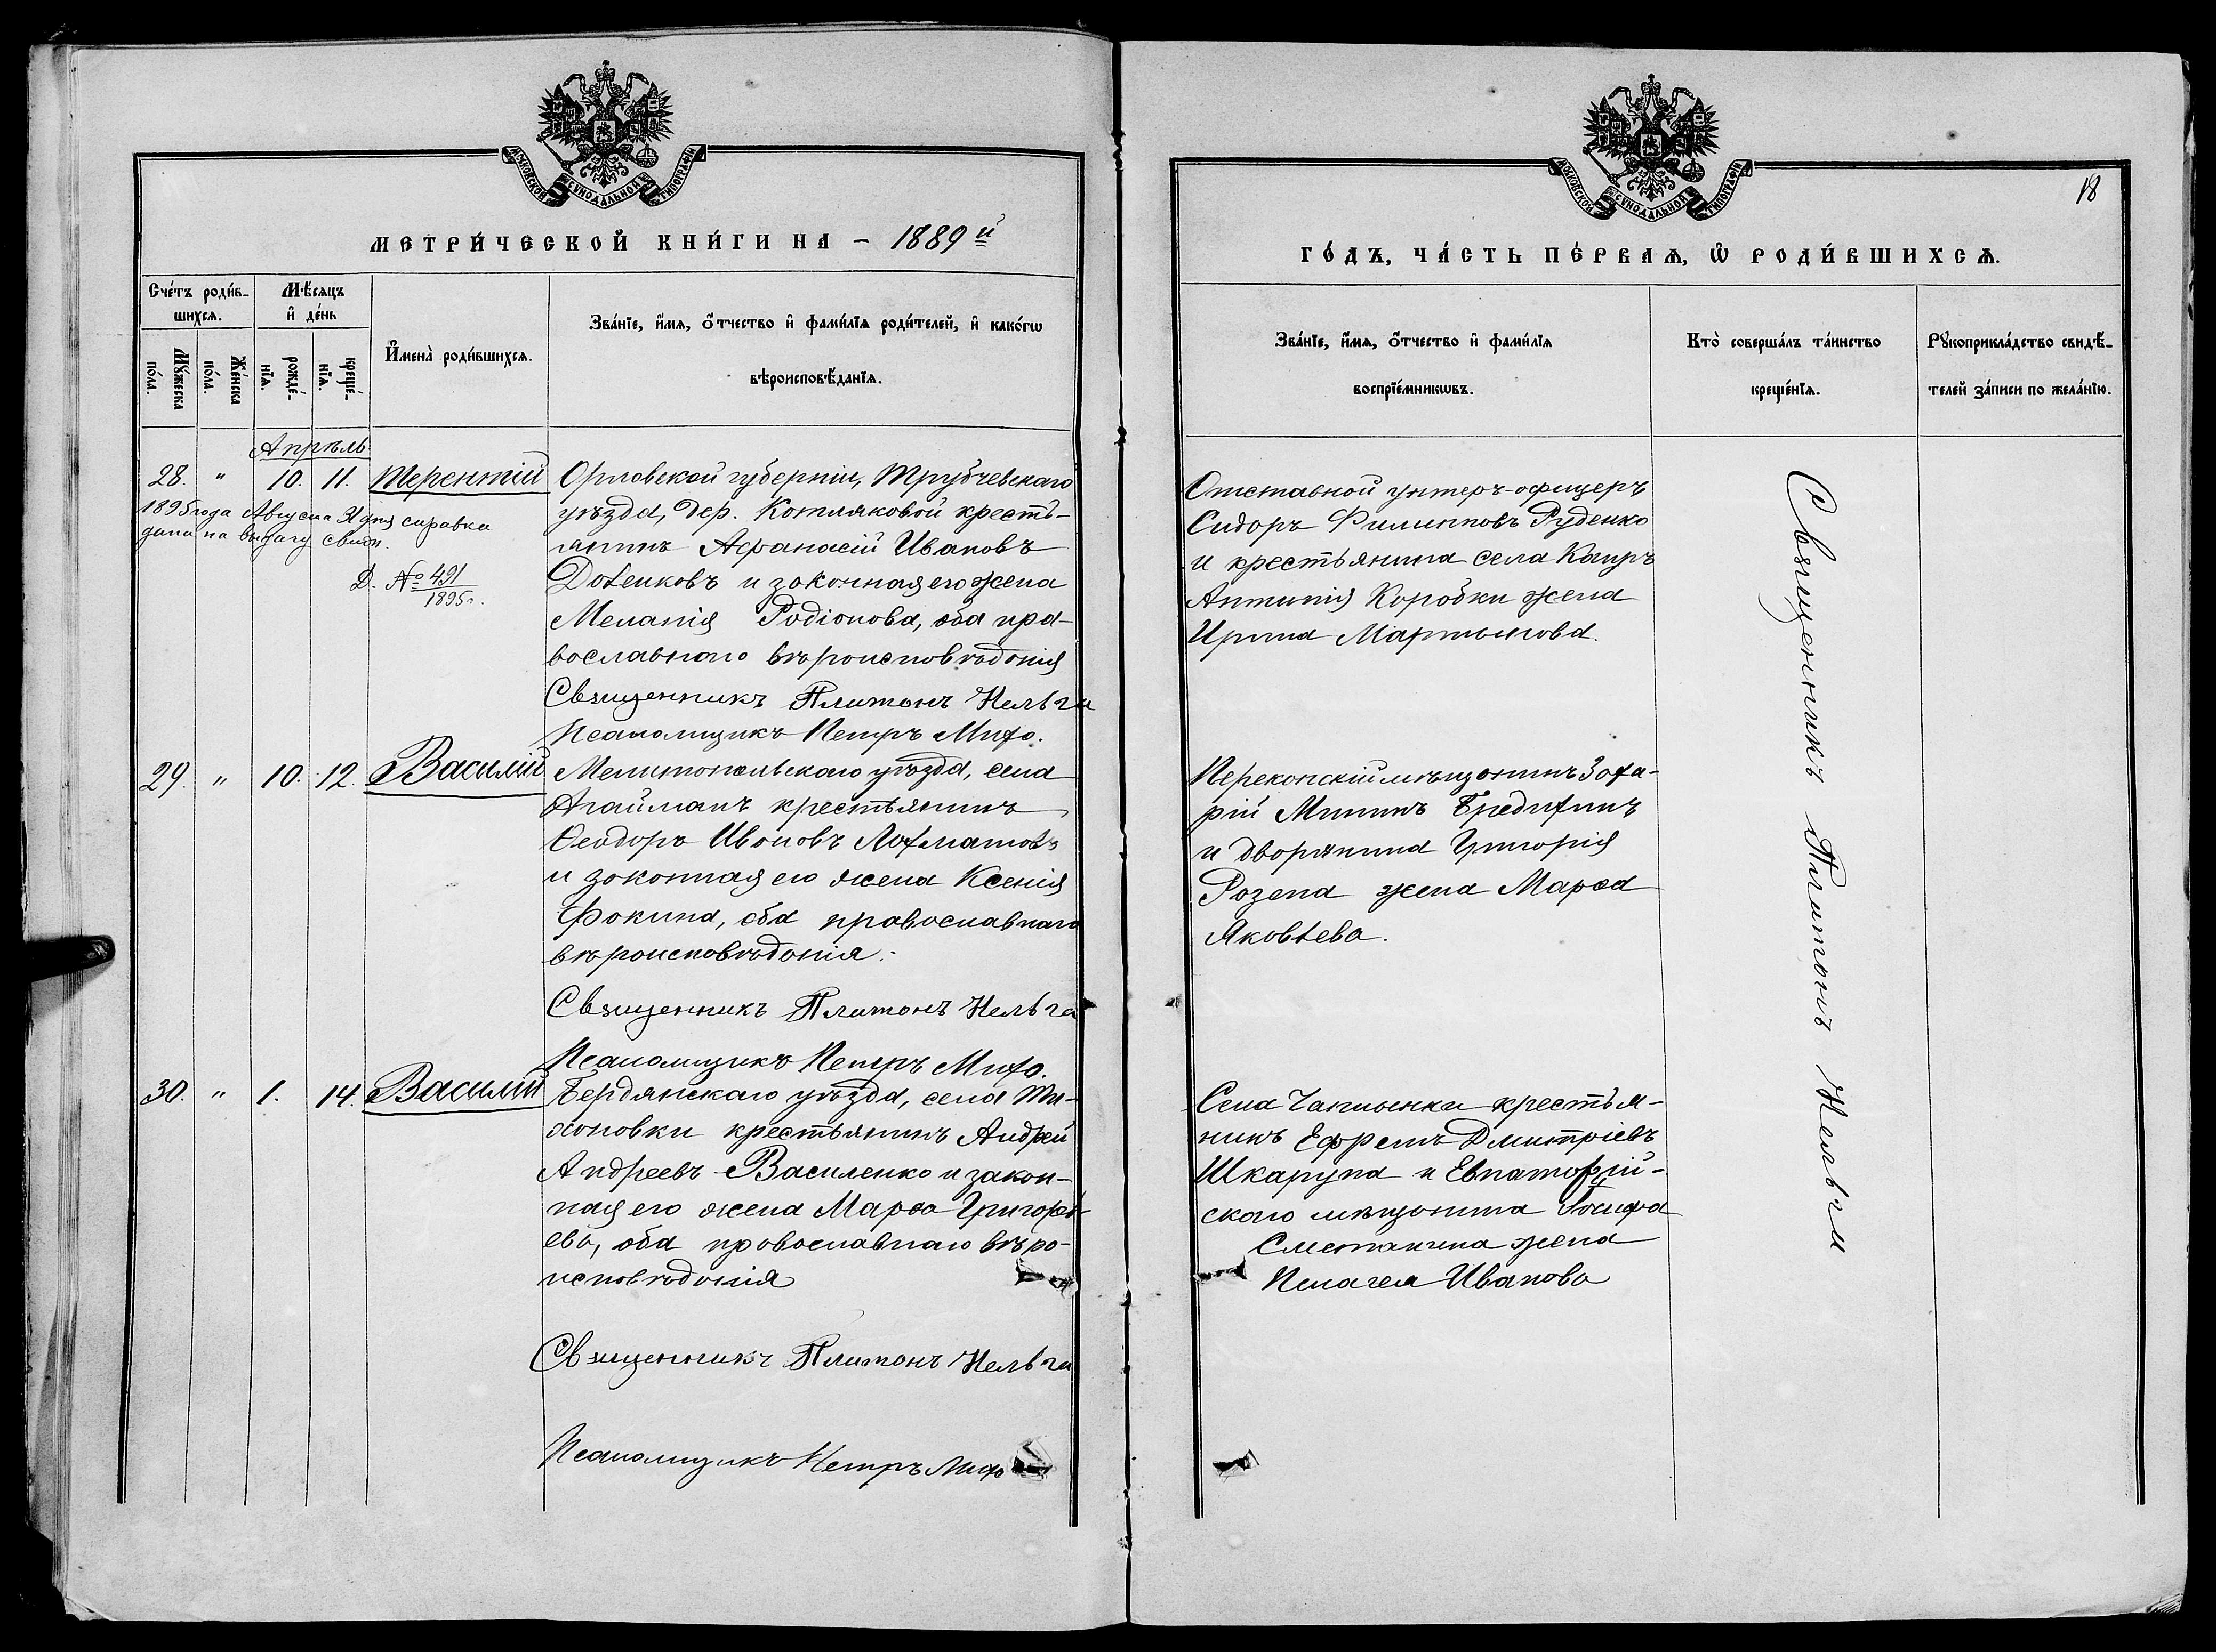 МОСКОВСКОЙ СУНОДАЛЬНОЙ ТИПОГРАФІИ
МЕТРИ́ЧЕСКОЙ КНИ́ГИ НА – 1889й
Сче́тъ роди́в-
шихсѧ.
Мꙋ́жеска
по́ла.
Же́нска
по́ла.
Мѣ́сяцъ
и҆ де́нь
рожде́-
нїѧ.
креще́-
нїѧ.
И҆мена̀ роди́вшихсѧ.
Зва́нїе, и҆́мѧ, ѻ҆́тчество и҆ фами́лїѧ роди́телей, и҆ како́гѡ
вѣроисповѣ́данїѧ.
Апрѣль
28. " 10. 11. Терентій
1895 года Августа 31 дня справка
дана на выдачу свид.
Д. № 491/1895 г.
Орловской губерніи, Трубчевскаго
уѣзда, дер. Котляковой кресть-
янинъ Афанасій Ивановъ
и законная его жена
Меланія Родіонова, оба пра-
вославнаго вѣроисповѣданія
Священникъ Платонъ Нельга
Псаломщикъ Петръ Михо.
29. " 10. 12. Василій
Мелитопольскаго уѣзда, села
Агайманъ крестьянинъ
Ѳеодоръ Ивановъ Лохматовъ
и законная его жена Ксенія
Фокина, оба православнаго
вѣроисповѣданія.
Священникъ Платонъ Нельга
Псаломщикъ Петръ Михо.
30. " 1. 14. Василій
Бердянскаго уѣзда, села Ти-
хоновки крестьянинъ Андрей
Андреевъ Василенко и закон-
ная его жена Марѳа Григорь-
ева, оба православнаго вѣро-
исповѣданія
Священникъ Платонъ Нельга
Псаломщикъ Петръ Михо
МОСКОВСКОЙ СУНОДАЛЬНОЙ ТИПОГРАФІИ
18
ГО́ДЪ, ЧА́СТЬ ПЕ́РВАѦ, Ѡ҆ РОДИ́ВШИХСѦ.
Зва́нїе, и҆́мѧ, ѻ҆́тчество и҆ фами́лїѧ
воспрїе́мникѡвъ.
Кто̀ соверша́лъ та́инство
креще́нїѧ.
Рꙋкоприкла́дство свидѣ́-
телей за́писи по жела́нїю.
Отставной унтеръ-офицеръ
Сидоръ Филипповъ Руденко
и крестьянина села Каиръ
Антипія Коробки жена
Ирина Мартынова.
Перекопскій мѣщанинъ Заха-
рій Мининъ Бредихинъ
и дворянина Григорія
Розена жена Марѳа
Яковлева.
Села Чаплынки крестья-
нинъ Ефремъ Дмитріевъ
Шкарупа и Евпаторій-
скаго мѣщанина Іосифа
Сметанина жена
Пелагея Иванова
Священникъ Платонъ Нельга